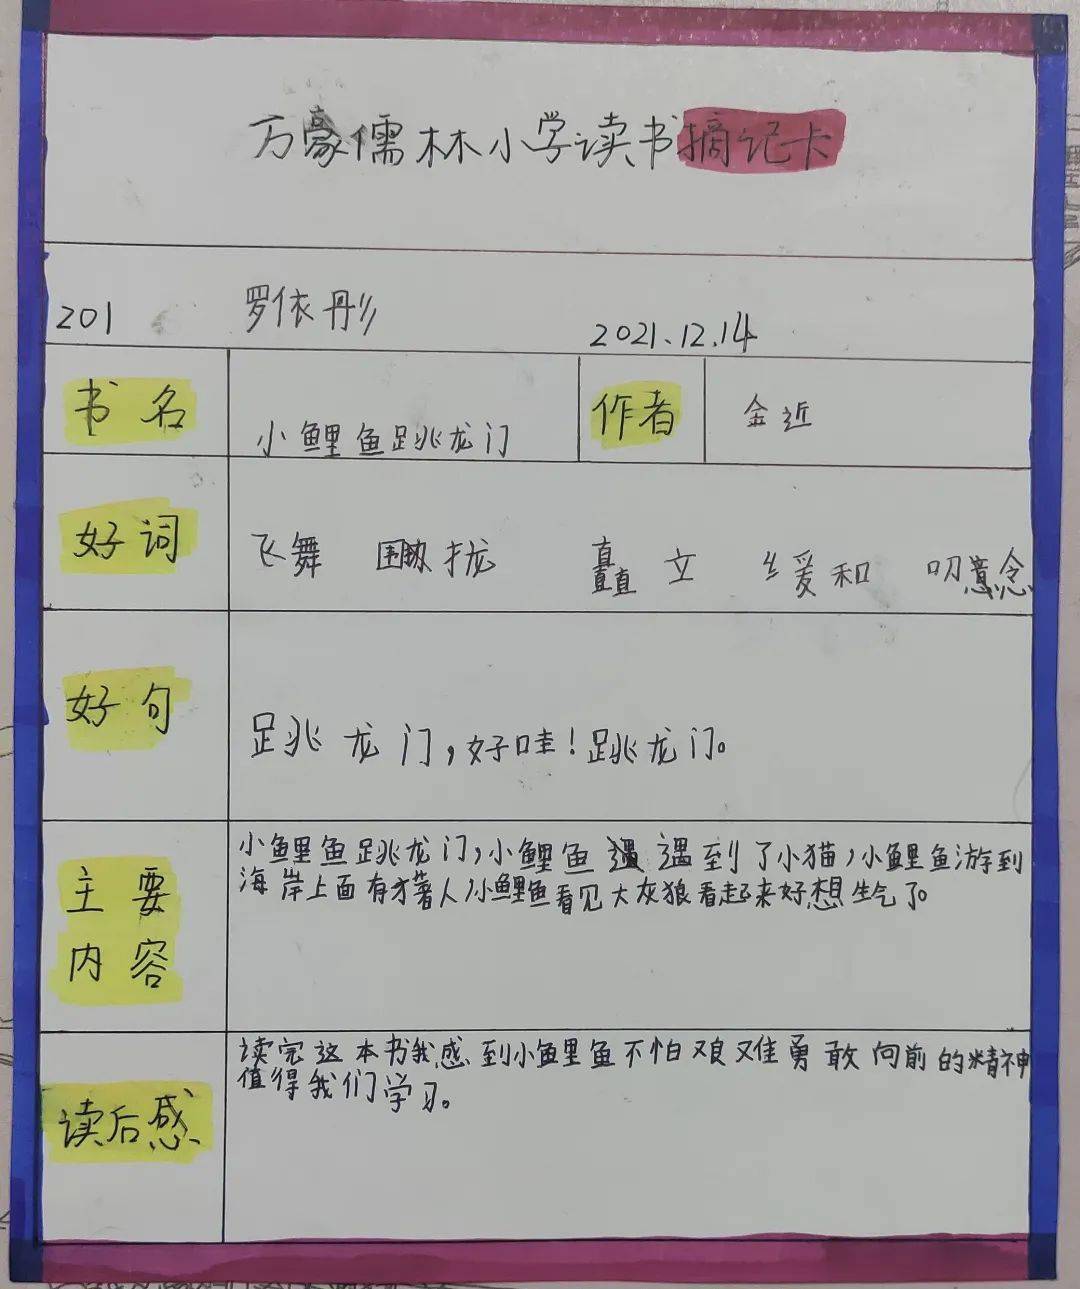 万豪儒林小学读书摘记卡
201 罗依彤 2021.12.14
书名 小鲤鱼跳龙门 作者 金近
好词 飞舞 围拢 矗立 缓和 叨念
好句 跳龙门,好哇!跳龙门。
主要
内容
小鲤鱼跳龙门,小鲤鱼遇到了小猫,小鲤鱼游到
海岸上面有才著人,小鲤鱼看见大灰狼看起来好想生气了。
读后感
读完这本书我感到小鲤鱼不怕艰难勇敢向前的精神
值得我们学习。